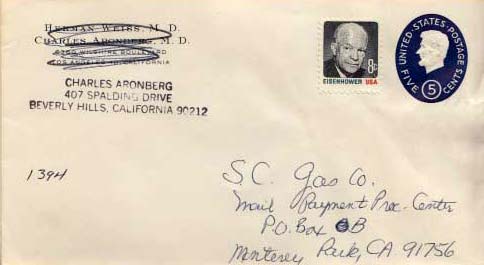 HERMAN WEISS, M. D.
CHARLES ARONBERG, M. D.
WILSHIRE BOULEVARD
LOS ANGELES CALIFORNIA
CHARLES ARONBERG
407 SPALDING DRIVE
BEVERLY HILLS, CALIFORNIA 90212
8c
EISENHOWER USA
UNITED·STATES·POSTAGE
FIVE 5 CENTS
1394
S.C. Gas Co.
Mail Payment Proc. Center
P.O. Box B
Monterey Park, CA. 91756